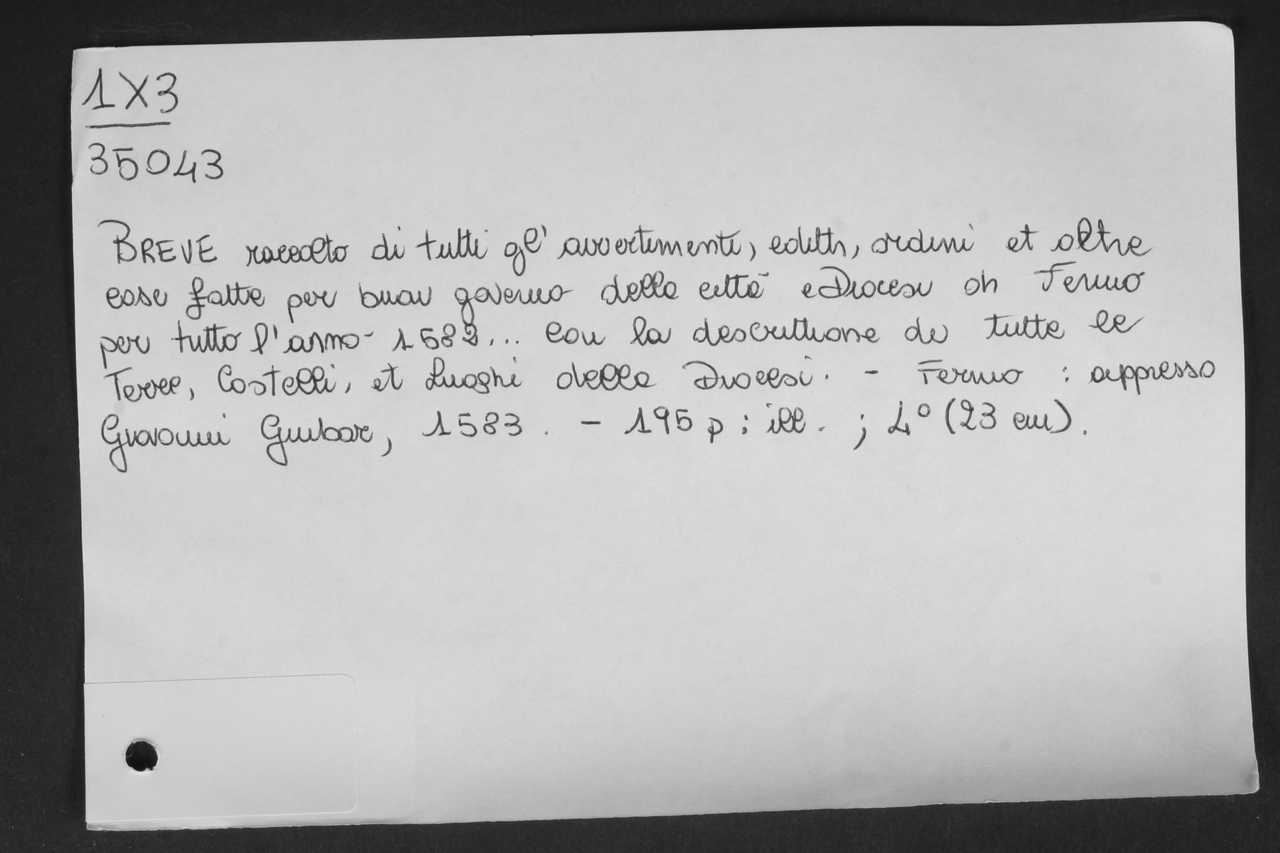 1X3
35043
BREVE raccolto di tutti gl' avvertimenti, editti, ordini et altre
cose fatte per buon governo della città e Diocesi di Fermo
per tutto l'anno 1582... Con la descrittione de tutte le
Terre, Castelli, et Luoghi della Diocesi. - Fermo : appresso
Giovanni Giubar, 1583. - 195 p : ill. ; 4° (23 cm).